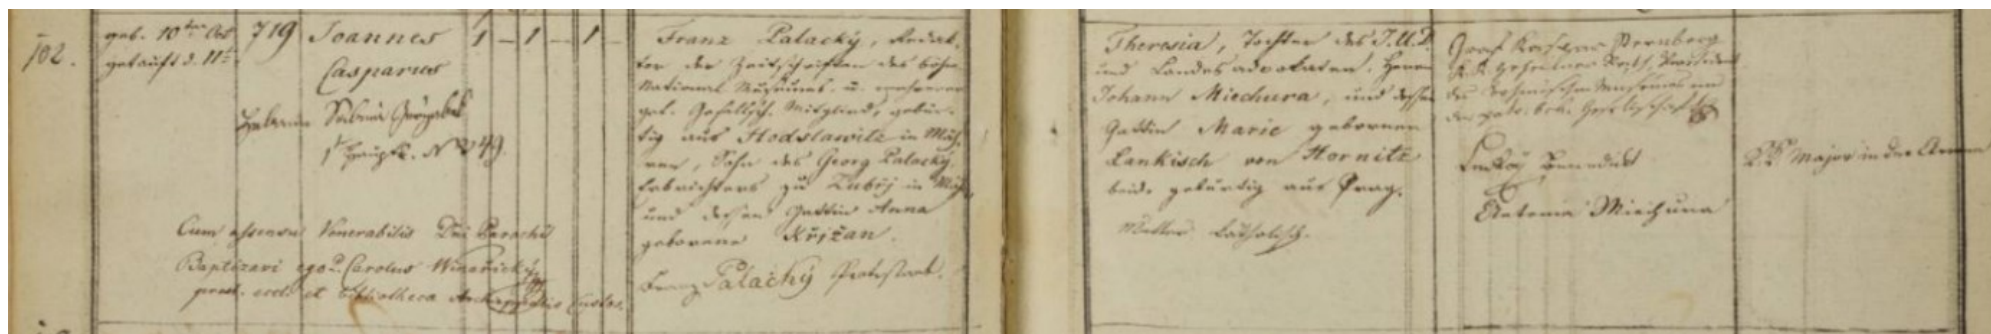 102.
geb. 10ten Oct
getauft d. 11t.
719
Joannes
Casparus
1 – 1 – 1 –
Hebamme Sabina
No 749.
Cum assensu Venerabilis Dni Parochi
Baptizavi ego P. Carolus Winařický
et Bibliotheca Custos.
Franz Palacký, Redak-
tor der Zeitschriften des böhm.
National Museums u. mehrerer
gel. Gesellsch. Mitglied, gebür-
tig aus Hodslawitz in Mäh-
ren, Sohn des Georg Palacký,
Erbrichters zu Zubří in Mäh.
und dessen Gattin Anna
geborene Křižan.
Franz Palacký Protestant.
Theresia, Tochter des J.U.D.
und Landesadvokaten, Herrn
Johann Miechura, und dessen
Gattin Marie gebornen
Lankisch von Hornitz
beide gebürtig aus Prag.
Mutter katholisch.
Graf Kaspar Sternberg
K. K. Geheimer Rath, Präsident
des böhmischen Museums
Gesellschaft
Benedikt
Antonia Miechura
K. K. Major in der Armee